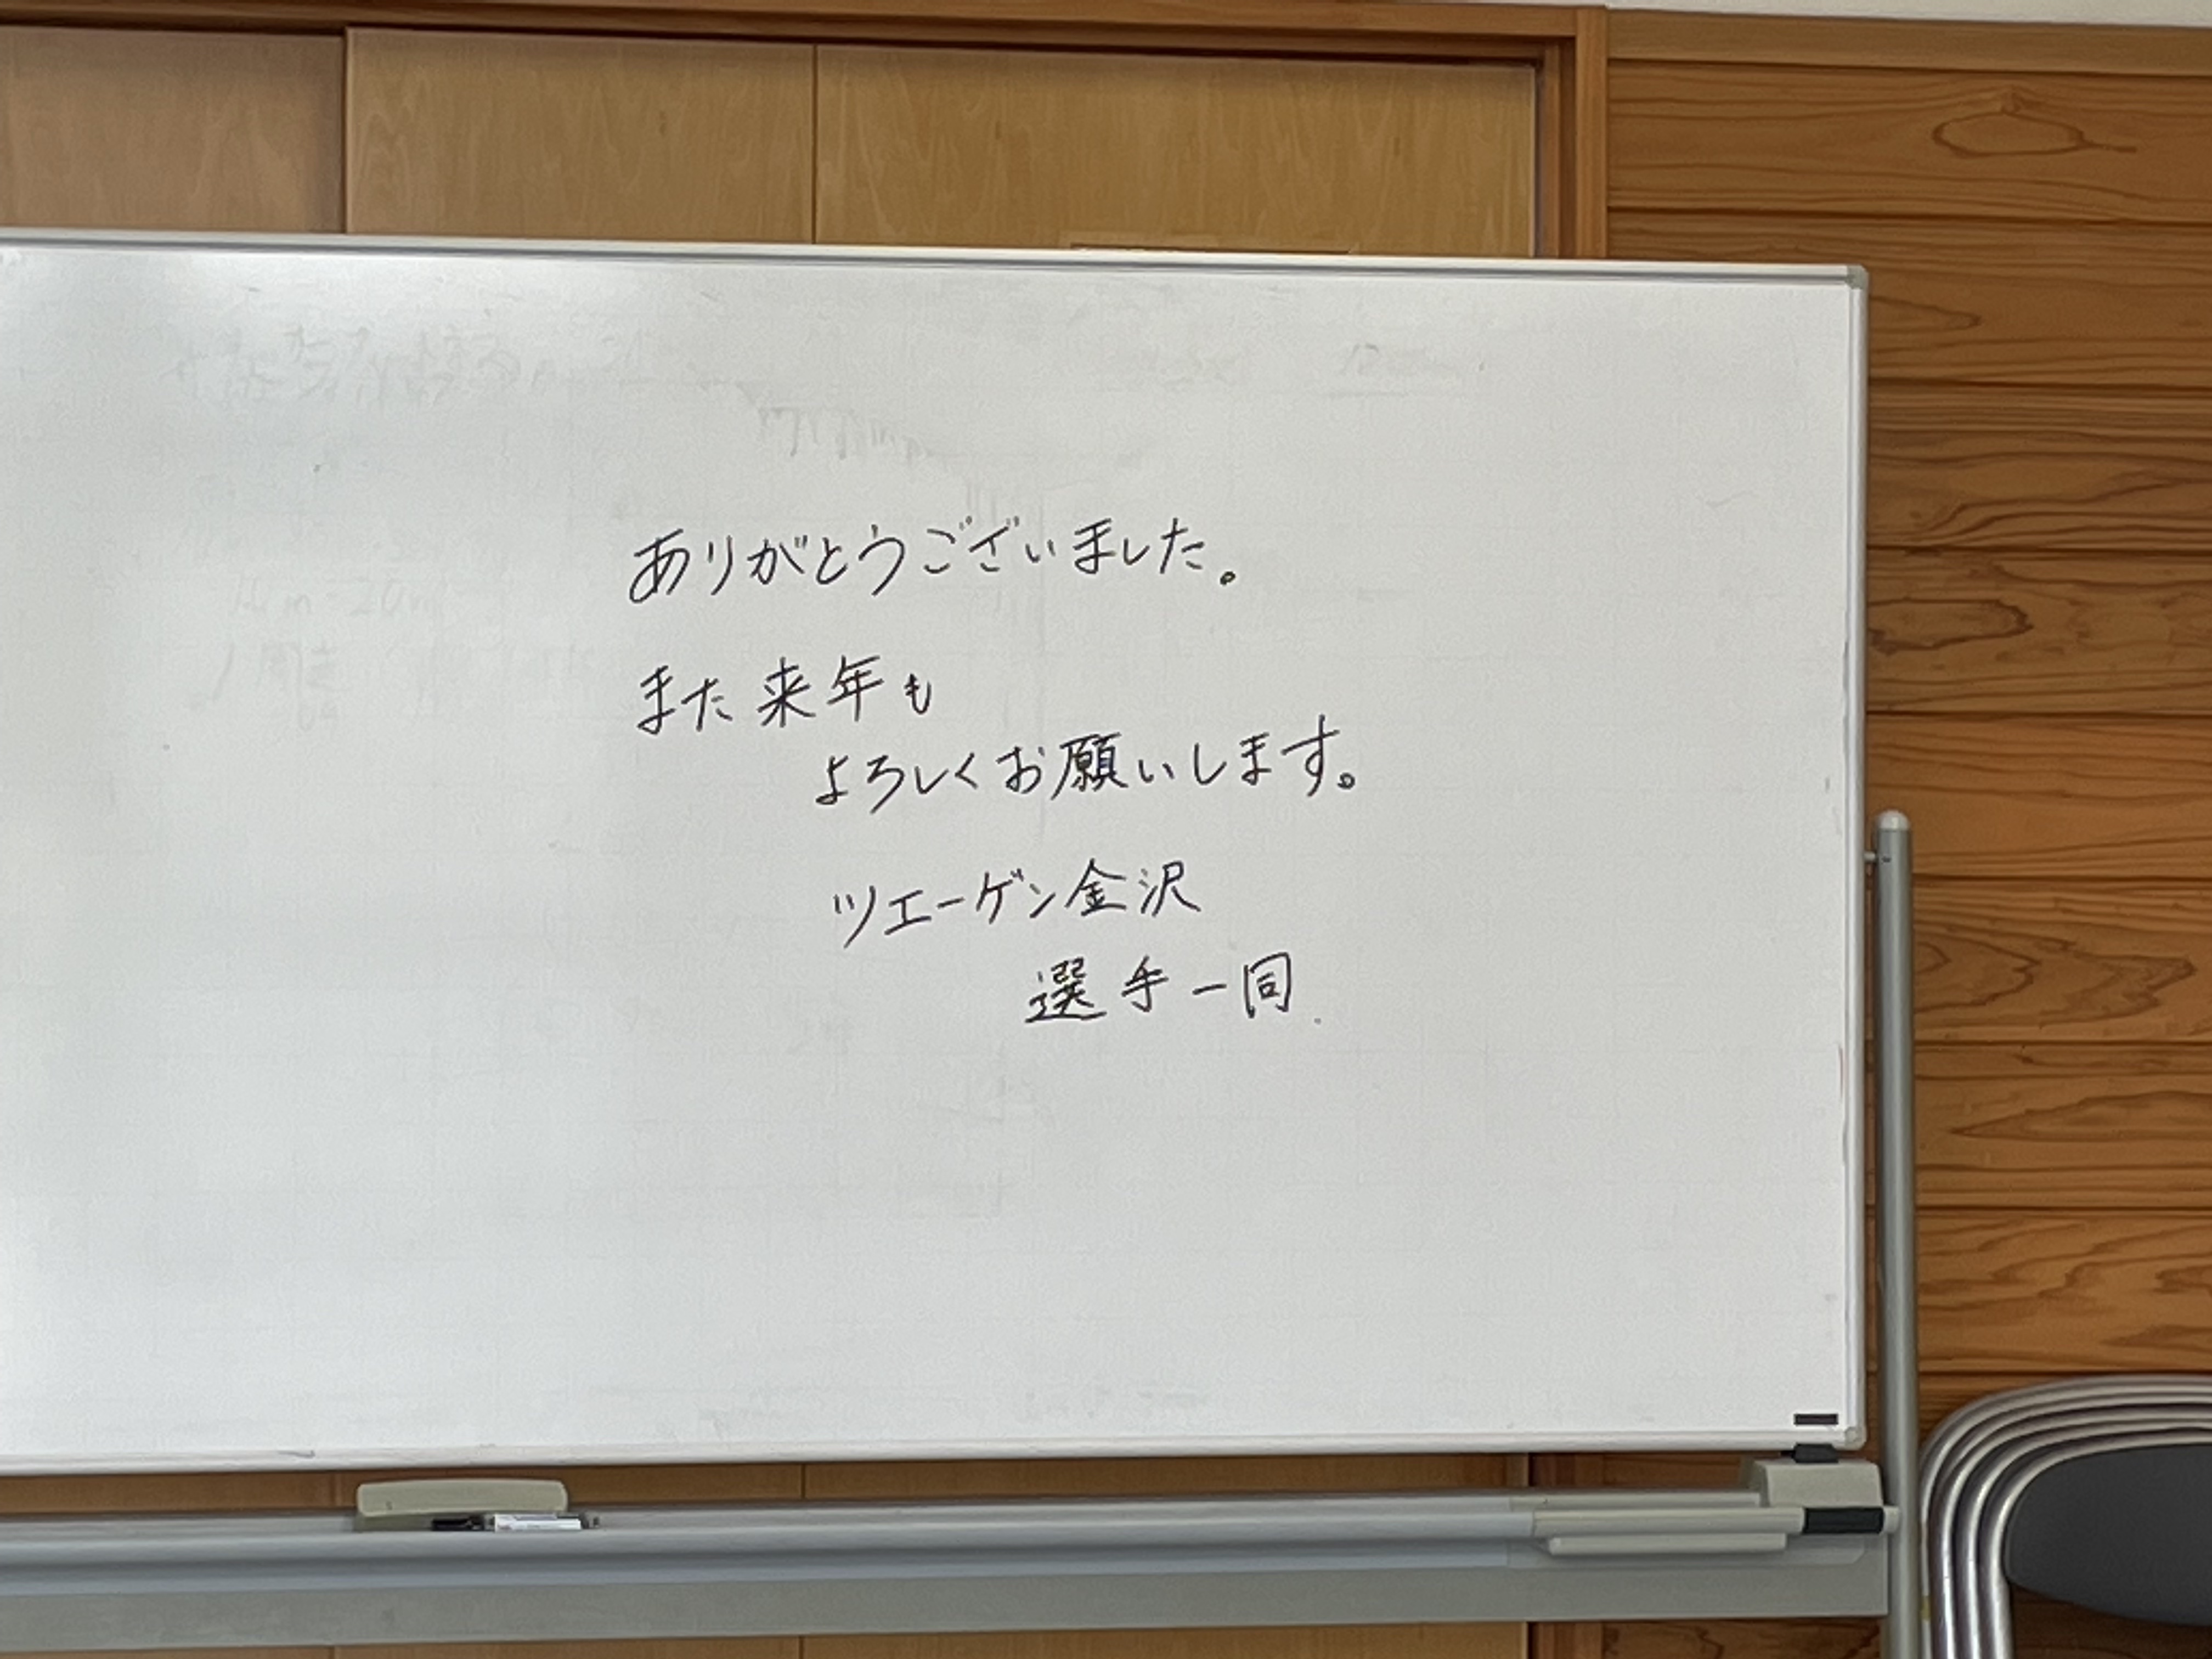 ありがとうございました。
また来年も
よろしくお願いします。
ツエーゲン金沢
選手一同